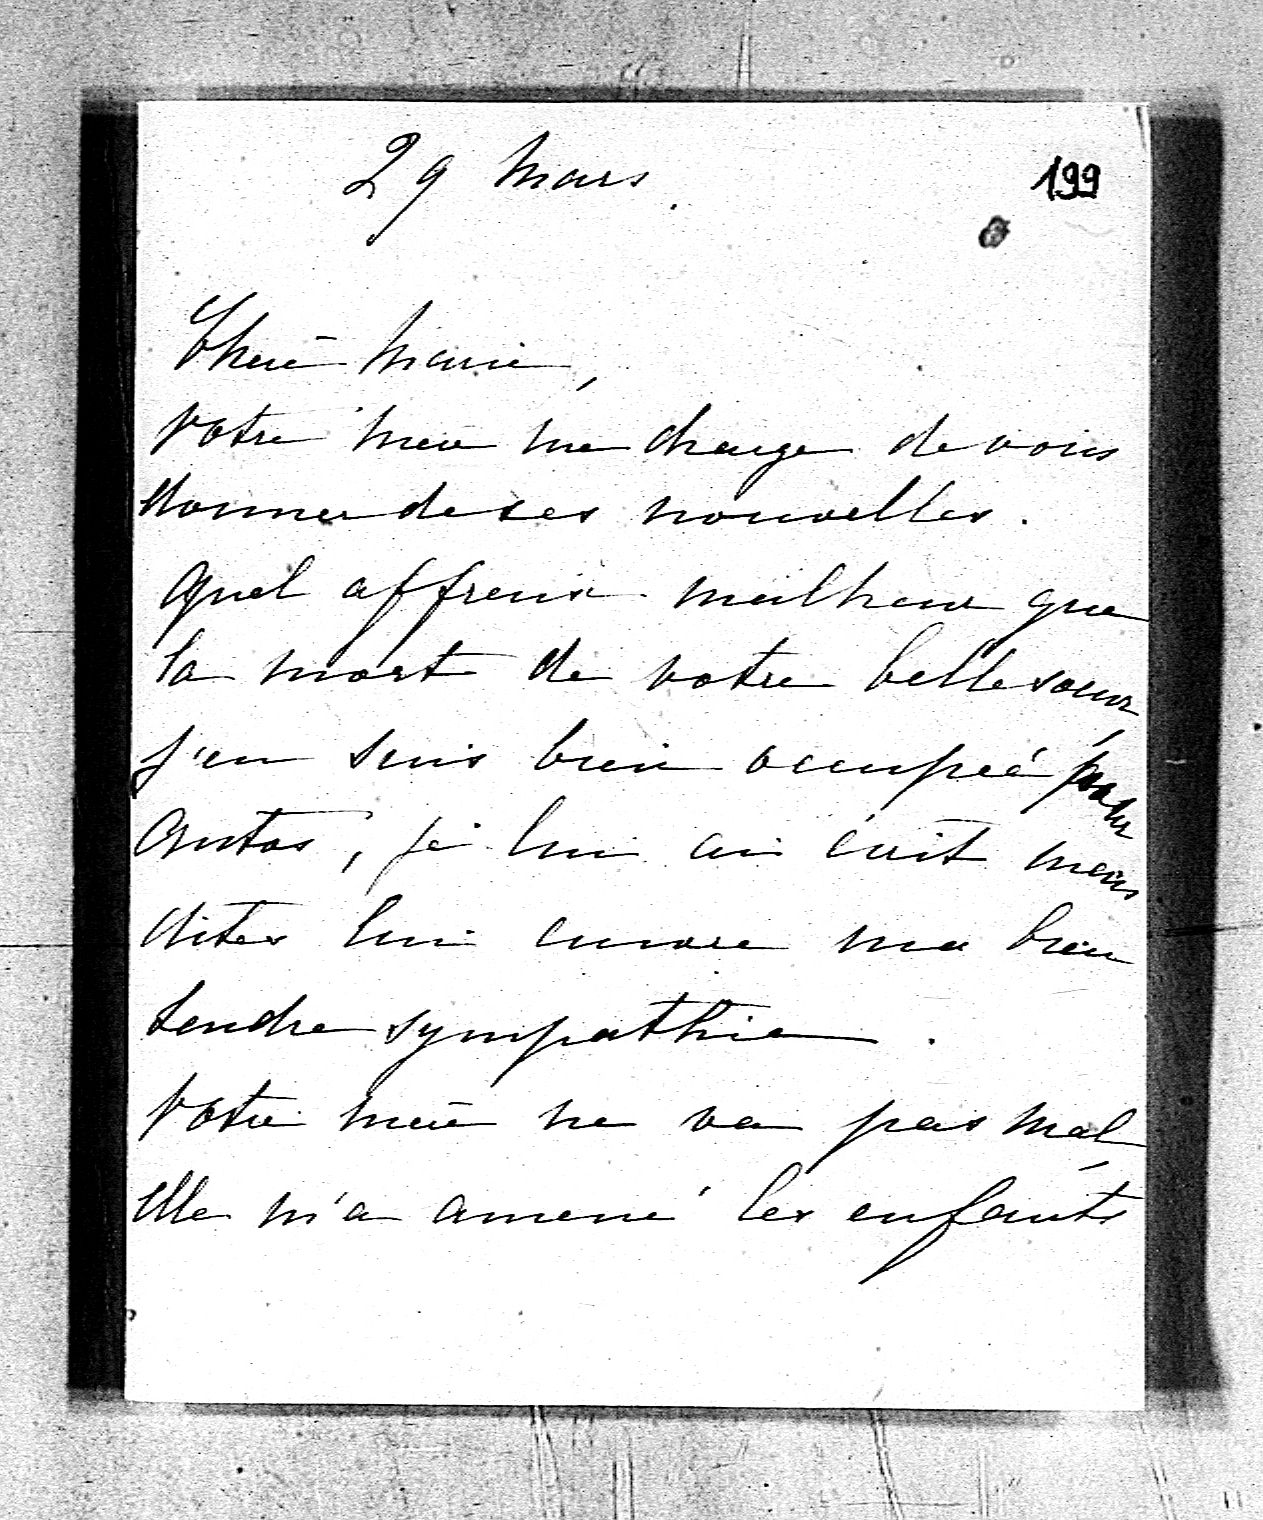 29 Mars.
199
Chère Marie,
Votre mère me charge de vous
donner de ses nouvelles.
Quel affreux malheur que
la mort de votre belle soeur,
j'en suis bien occupée pour
Antos, je lui ai écrit mais
dites lui encore ma bien
tendre sympathie.
Votre mère ne va pas mal,
elle m'a amené les enfants